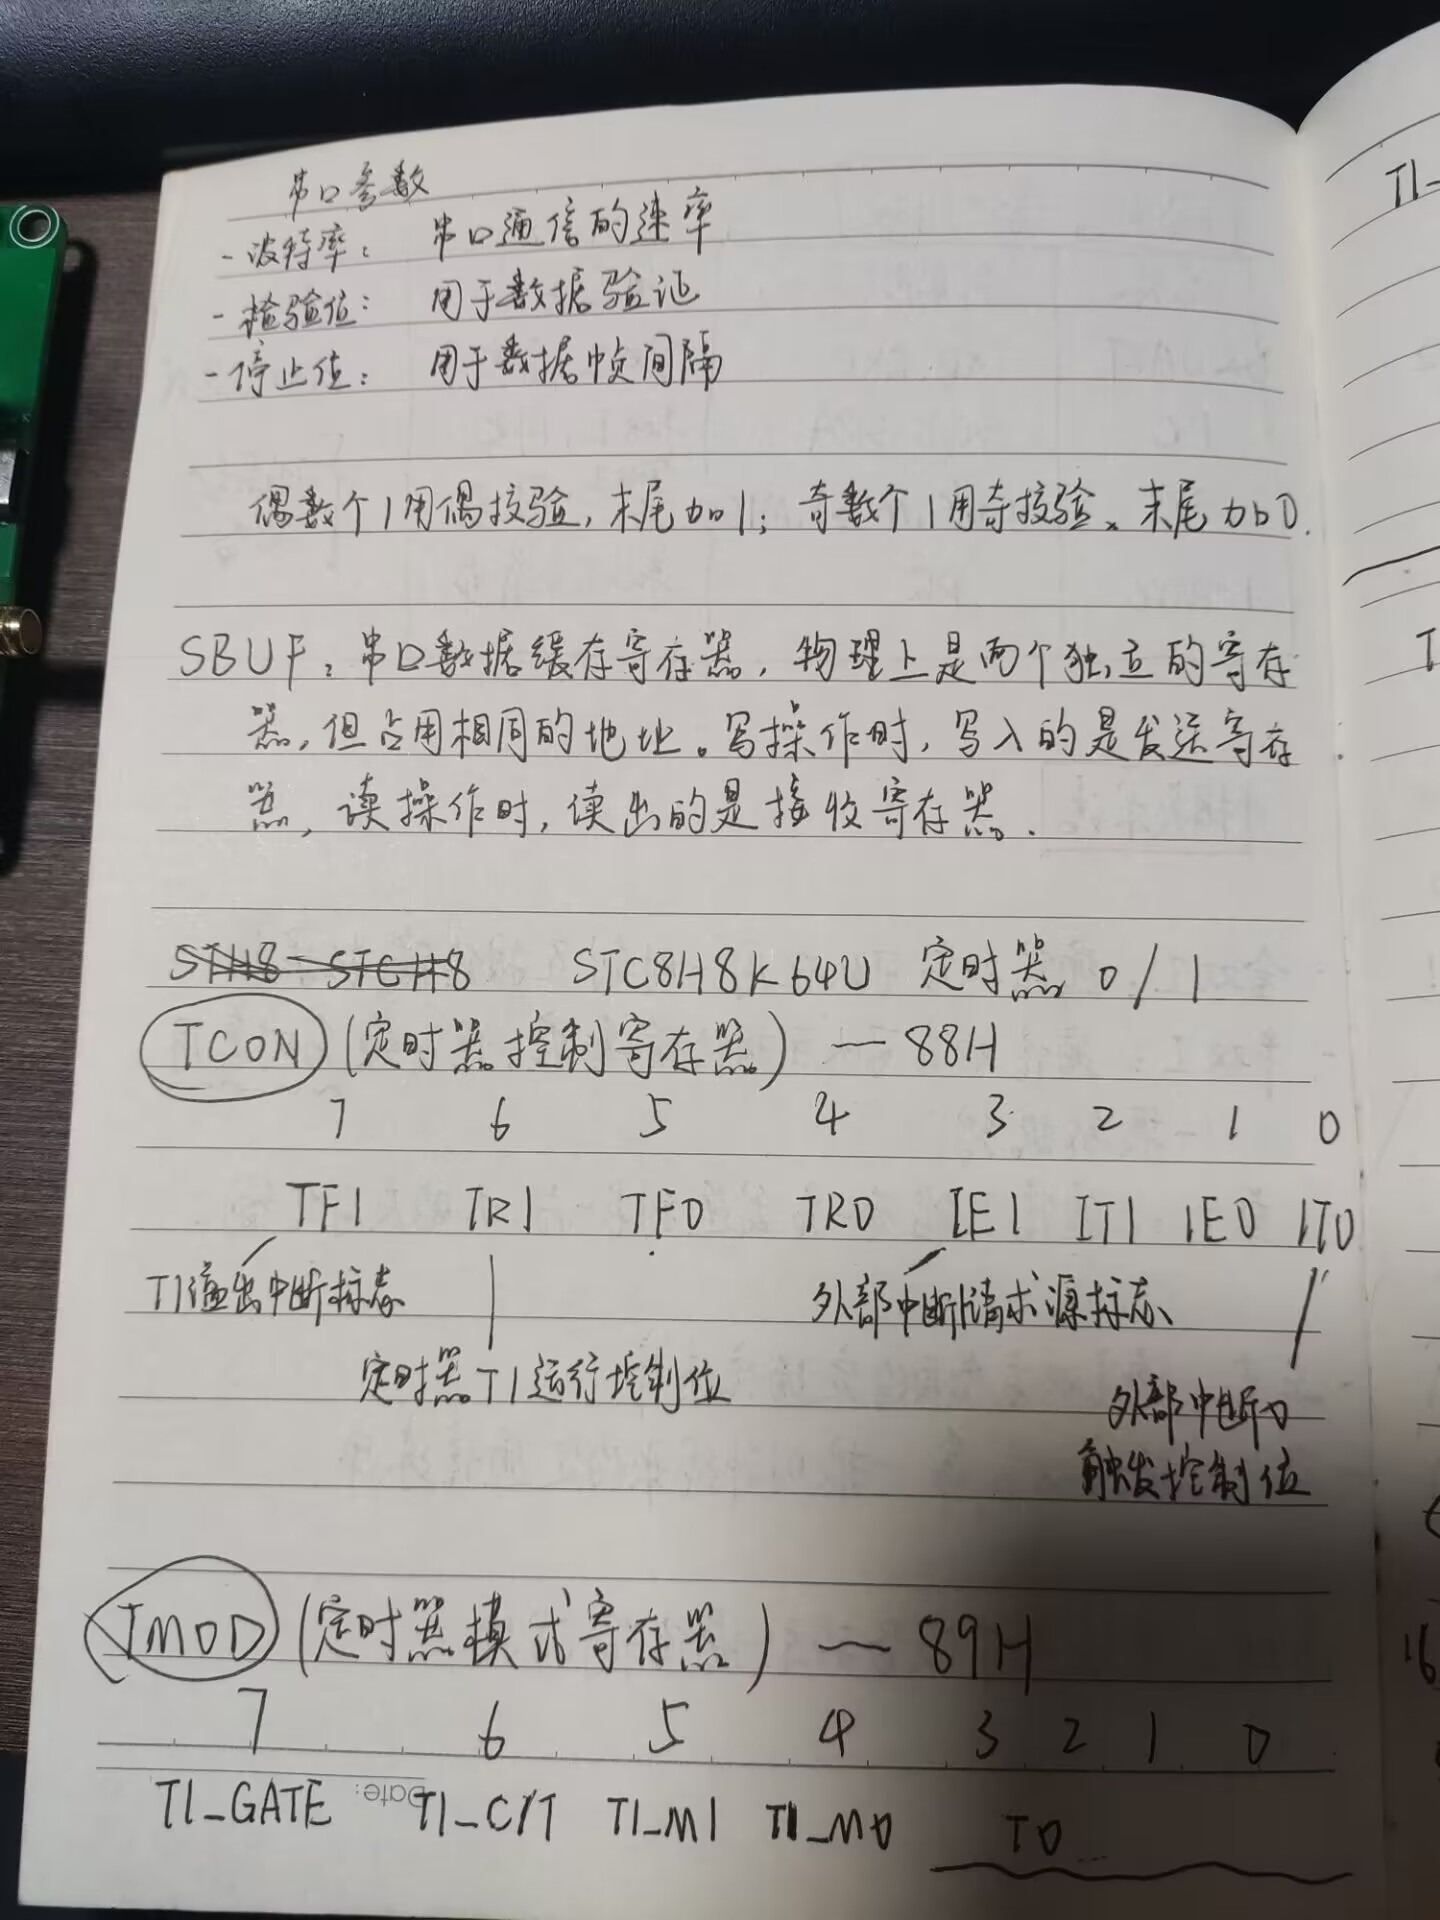 串口参数
- 波特率： 串口通信的速率
- 检验位： 用于数据验证
- 停止位： 用于数据帧间隔
偶数个1用偶校验，末尾加1；奇数个1用奇校验。末尾加0.
SBUF：串口数据缓存寄存器，物理上是两个独立的寄存
器，但占用相同的地址。写操作时，写入的是发送寄存
器，读操作时，读出的是接收寄存器.
STC8H8K64U 定时器 0/1
TCON (定时器控制寄存器) — 88H
7 6 5 4 3 2 1 0
TF1 TR1 TF0 TR0 IE1 IT1 IE0 IT0
T1溢出中断标志 外部中断1请求源标志
定时器T1运行控制位
外部中断0
触发控制位
TMOD (定时器模式寄存器) — 89H
7 6 5 4 3 2 1 0
Date:
T1_GATE T1_C/T T1_M1 T1_M0 T0
T1-
T
16